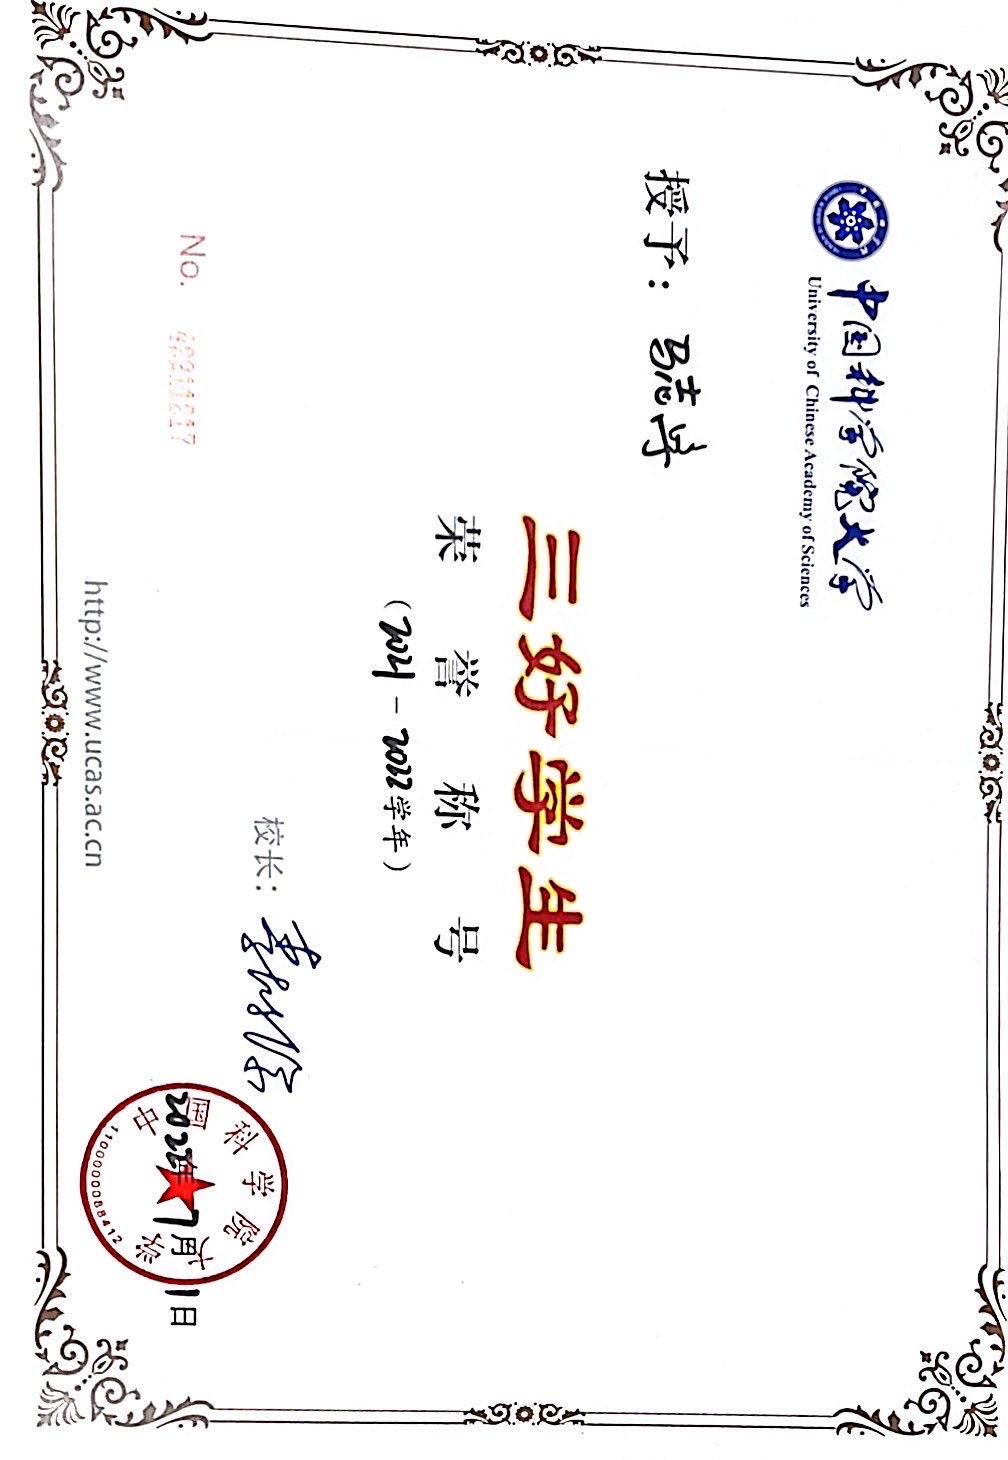 中国科学院大学
University of Chinese Academy of Sciences
授予：马志峰
三好学生
荣誉称号
（2021－2022学年）
校长：
No. 42211217
http://www.ucas.ac.cn
中国科学院大学
2022年7月1日
1100000088412